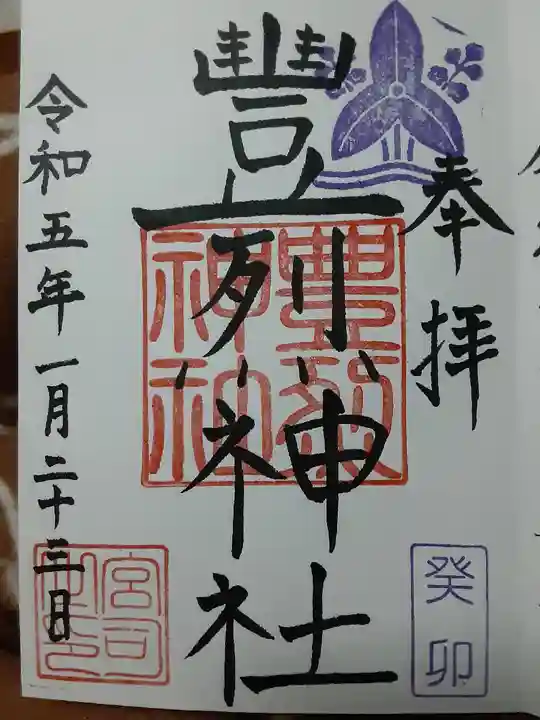 奉拝
豐烈神社
令和五年一月二十三日
豊烈神社
宮司之印
癸卯